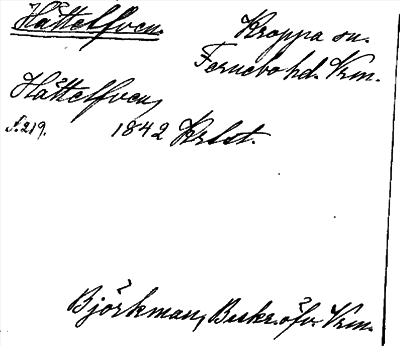 Hättelfven.
Kroppa sn.
Fernebo hd. Vrm.
Hättelfven,
s. 219. 1842 Krlst.
Björkman, Beskr. öfv. Vrm.